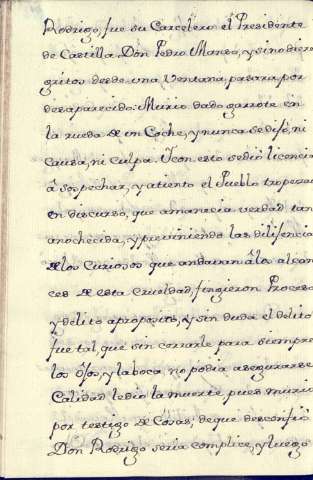 Rodrigo, fue su Carcelero el Presidente
de Castilla Don Pedro Manso, y sino diera
gritos desde una Ventana, pasara por
desaparecido: Murio dado garrote en
la rueda de un Coche, y nunca se dijo, ni
causa, ni culpa. Y con esto se diò licencia
â sospechar, y atiento el Pueblo tropezava
en discurso, que amanecia verdad tan
anochecida, y previniendo las dilijencias
de los Curiosos que andavan â los alcan
ces de esta Crueldad, finjieron Proceso
y delito aproposito, y sin duda el delito
fue tal, que sin cerrarle para siempre
los Ojos, y la boca no podia asegurarse
Calidad le diò la muerte, pues murio
por testigo de Cosas; de que desconfiò
Don Rodrigo seria complice, y luego